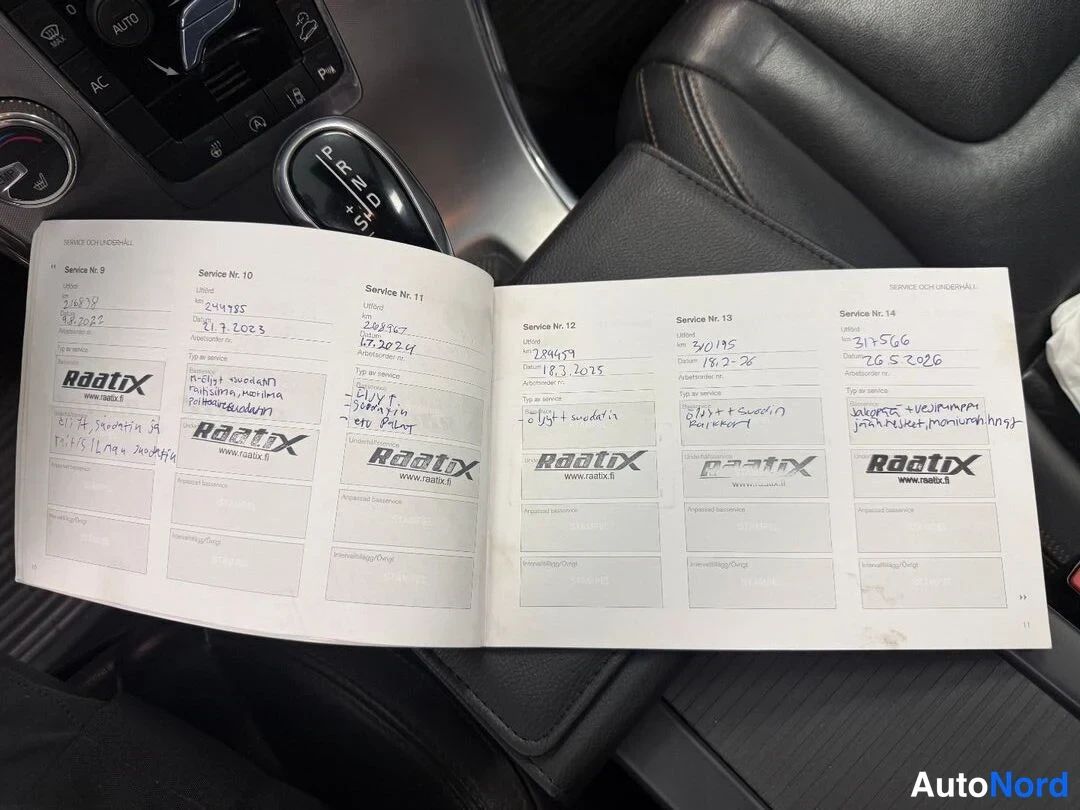 MAX
0
AUTO
AC
P
R
N
D
S
+
SERVICE OCH UNDERHÅLL
Service Nr. 9
Utförd
km 216838
Datum 9.8.2022
Arbetsorder nr.
Typ av service
Basservice
Raatix
www.raatix.fi
öljyt, suodatin ja
suodatin
Anpassad basservice
Intervalltillägg/Övrigt
STÄMPEL
10
Service Nr. 10
Utförd
km 244985
Datum 21.7.2023
Arbetsorder nr.
Typ av service
Basservice
M-öljyt + suodatin
raitisilma, moottorin
suodatin
Raatix
www.raatix.fi
Anpassad basservice
Intervalltillägg/Övrigt
STÄMPEL
Service Nr. 11
Utförd
km 268967
Datum 1.7.2024
Arbetsorder nr.
Typ av service
Basservice
- Öljyt
- suodatin
- etu palat
Underhållsservice
Raatix
www.raatix.fi
Anpassad basservice
Intervalltillägg/Övrigt
STÄMPEL
SERVICE OCH UNDERHÅLL
Service Nr. 12
Utförd
km 289459
Datum 18.3.2025
Arbetsorder nr.
Typ av service
Basservice
- öljyt + suodatin
Raatix
www.raatix.fi
Anpassad basservice
STÄMPEL
Intervalltillägg/Övrigt
STÄMPEL
Service Nr. 13
Utförd
km 310195
Datum 18.2-26
Arbetsorder nr.
Typ av service
Basservice
Öljyt + suodin
Underhållsservice
Raatix
www.raatix.fi
Anpassad basservice
STÄMPEL
Intervalltillägg/Övrigt
STÄMPEL
Service Nr. 14
Utförd
km 317566
Datum 26.5.2026
Arbetsorder nr.
Typ av service
Basservice
Jakopää + vesipumppu
jäähnesteet, moniurahihnat
Raatix
www.raatix.fi
Anpassad basservice
STÄMPEL
Intervalltillägg/Övrigt
STÄMPEL
11
AutoNord